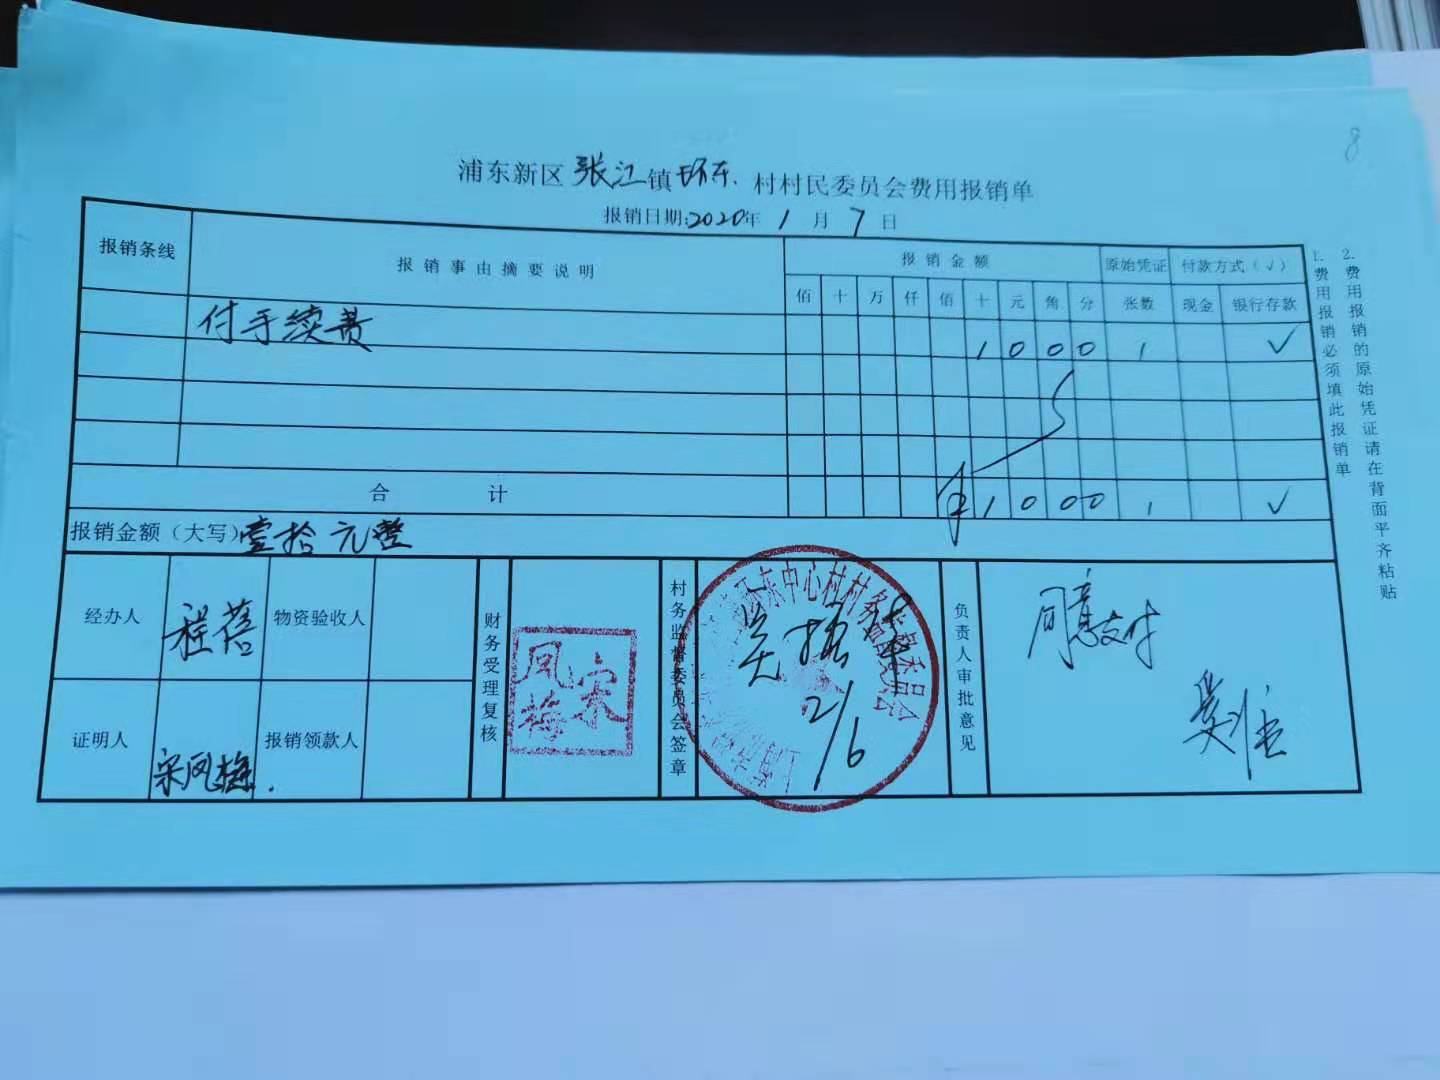 8
浦东新区张江镇环东村村民委员会费用报销单
报销日期:2020年1月7日
报销条线 报销事由摘要说明 报销金额 原始凭证 付款方式(√)
佰 十 万 仟 佰 十 元 角 分 张数 现金 银行存款
付手续费 1 0 0 0 1 √
合计 ¥ 1 0 0 0 1 √
报销金额(大写)壹拾元整
经办人 程蓓 物资验收人
证明人 宋凤梅. 报销领款人
财务受理复核
宋凤梅
村务监督委员会签章
环东中心村村务监督委员会
2/6
负责人审批意见
同意支付
1.费用报销必须填此报销单
2.费用报销的原始凭证请在背面平齐粘贴